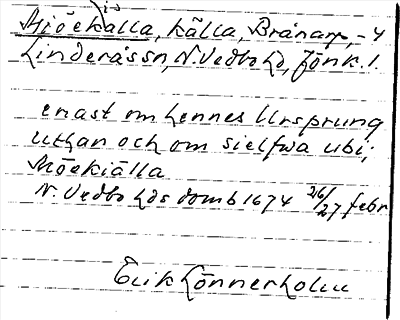 Mjöekälla, källa, Brånarp, -4
Linderås sn, N. Vedbo hd, Jönk. l.
enast om hennes Ursprung
uthan och om sielfwa ubi;
Möekiälla
N. Vedbo hds domb 1674 26/27 febr
Erik Lönnerholm